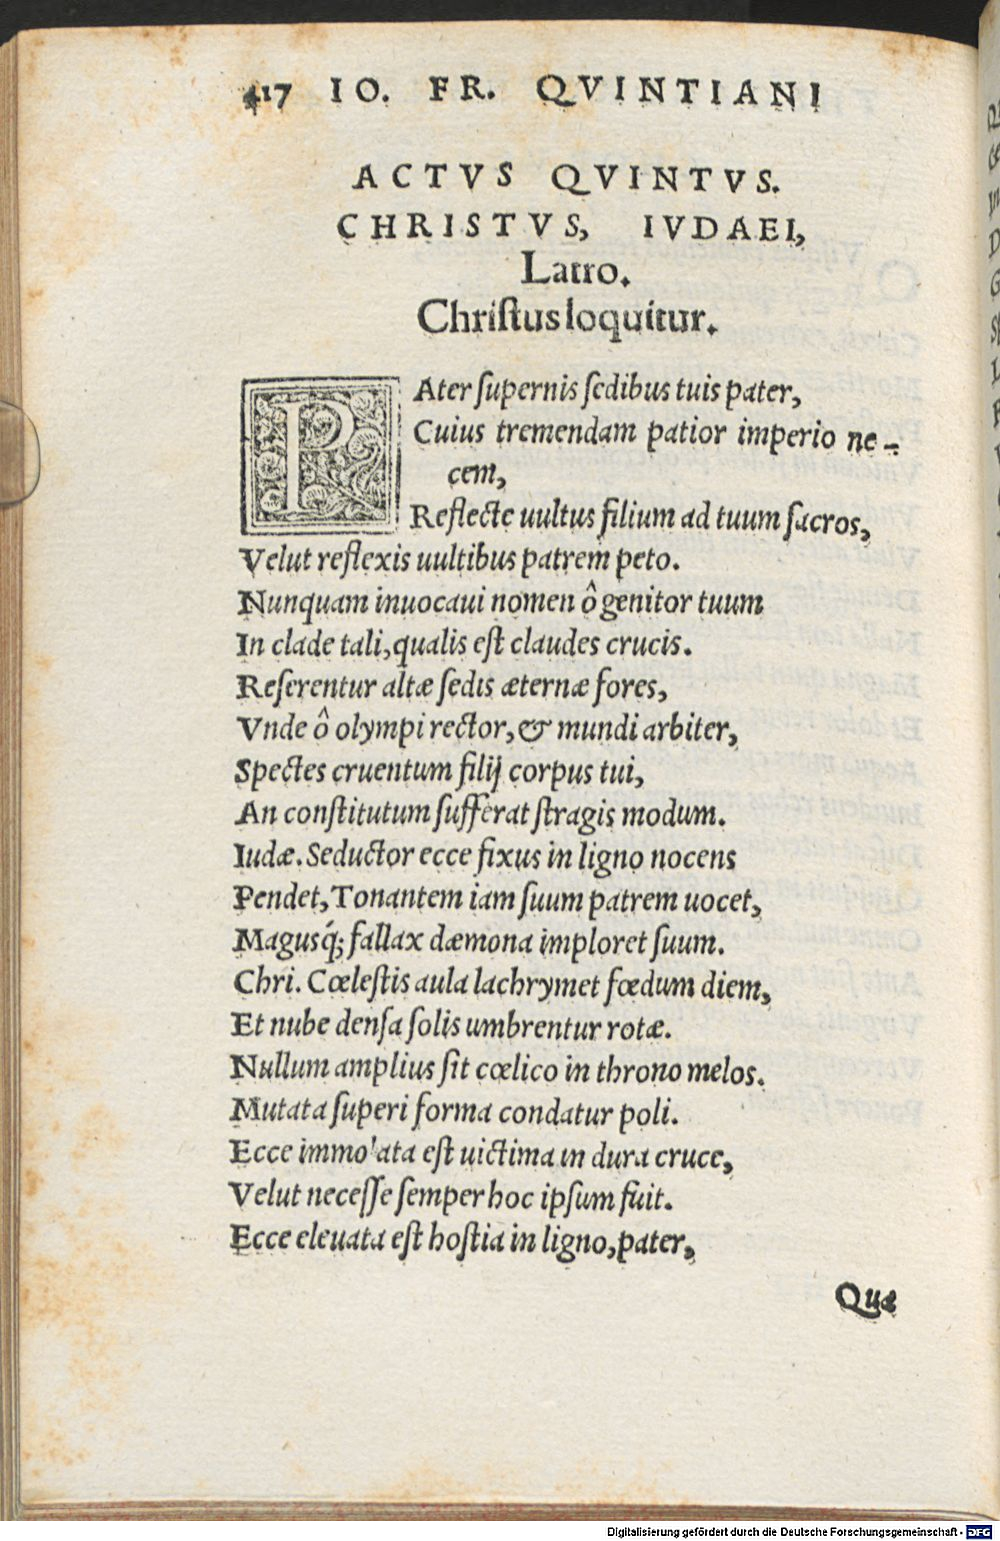 417 IO. FR. QVINTIANI
ACTVS QVINTVS.
CHRISTVS, IVDAEI,
Latro.
Christus loquitur.
PAter supernis sedibus tuis pater,
Cuius tremendam patior imperio ne-
cem,
Reflecte uultus filium ad tuum sacros,
Velut reflexis uultibus patrem peto.
Nunquam inuocaui nomen ô genitor tuum
In clade tali, qualis est claudes crucis.
Reserentur altæ sedis æternæ fores,
Vnde ô olympi rector, & mundi arbiter,
Spectes cruentum filij corpus tui,
An constitutum sufferat stragis modum.
Iudæ. Seductor ecce fixus in ligno nocens
Pendet, Tonantem iam suum patrem uocet,
Magusq́; fallax dæmona imploret suum.
Chri. Cœlestis aula lachrymet fœdum diem,
Et nube densa solis umbrentur rotæ.
Nullum amplius sit cœlico in throno melos.
Mutata superi forma condatur poli.
Ecce immolata est uictima in dura cruce,
Velut necesse semper hoc ipsum fuit.
Ecce eleuata est hostia in ligno, pater,
Quæ
Digitalisierung gefördert durch die Deutsche Forschungsgemeinschaft - DFG